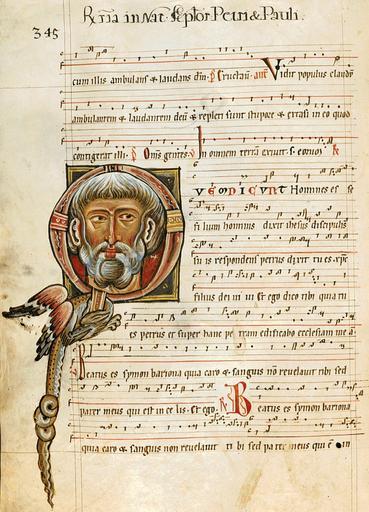 in Nat Petri & Pauli.
345
cum illis ambulans & laudans dm̄. Vidit populus claudū
ambulantem & laudantem deū & repleti sunt stupore & extasi in eo quod
contigerat illi. Om̄s gentes. In omnem terrā exiuit. s. eorum. R
Q VEM DICUNT Homines es se
filium hominis dixit ihesus discipulis
suis respondens petrus dixit tu es xp̄c
filius dei uiui & ego dico tibi quia tu
es petrus & super hanc pe tram edificabo ecclesiam me ā
Beatus es symon bariona quia caro & sanguis nō reuelauit tibi sed
pater meus qui est in ce lis. & ego. Beatus es symon bariona
quia caro & sanguis non reuelauit ti bi sed pa ter meus qui ē in